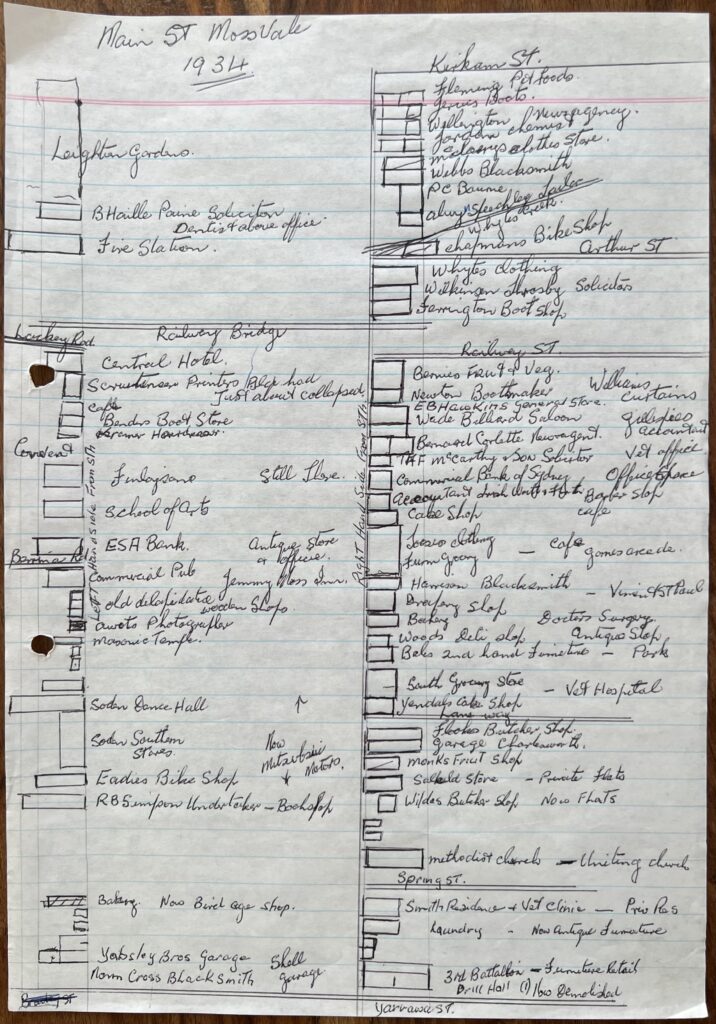 Main ST MossVale
1934
Leighton Gardens.
BHaille Paine Solicitor
Dentist above office.
Fire Station.
Railway Bridge
Central Hotel.
Printers Bldg had
Just about collapsed.
Cafe
Benders Boot Store
Convent
Still There.
School of Arts
Left Hand Side From Sth
ESA Bank. Antique Store
& Office.
Commercial Pub Jemmy Moss Inn.
old delapidated
wooden Shops.
Photographer
masonic Temple.
Soden Dance Hall ↑
Soden Southern
Stores. Now
Mitsubishi
Motors.
Eadies Bike Shop
RBSimpson Undertaker - Bookshop
Bakery Now Bird cage shop.
Yabsley Bros Garage Shell
garage
Norm Cross BlackSmith
Kirkam St.
Fleming Pet Foods.
Boots.
Newsagency.
Jordan chemist
clothes Store.
Webbs Blacksmith
PC Bourne
chapmans Bike Shop
Arthur ST
Whytes clothing
Wilkinson Throsby Solicitors
Ferrington Boot Shop
Railway ST.
Bernies Fruit & Veg.
Newton Bootmaker Williams
curtains
EBHawkins General Store.
Wade Billard Saloon
accountant
Bernard Corlette Newsagent.
Vet office
McCarthy & Son Solicitor
Commercial Bank of Sydney Office Space
Accountant Barber Shop
Cake Shop cafe
Right Hand Side From STh
clothing - Cafe
games arcade.
Harrison Blacksmith - Vinnies St Paul
Drapery Shop
Bakery Doctors Surgery.
Woods Deli shop Antique Shop
2nd hand Furniture - Park
South Grocery Store - Vet Hospital
Yendals Cake Shop
Lane way
Butcher Shop.
Garage Charlesworth.
monks Fruit Shop
Store - Private Flats
Wildes Butcher Shop Now FLats
methodist church - Uniting church
Spring ST.
Smith Residence & Vet Clinic - Priv Res
Laundry - Now Antique Furniture
3rd Battalion - Furniture Retail
Drill Hall (1) Now Demolished
Yarrawa ST.